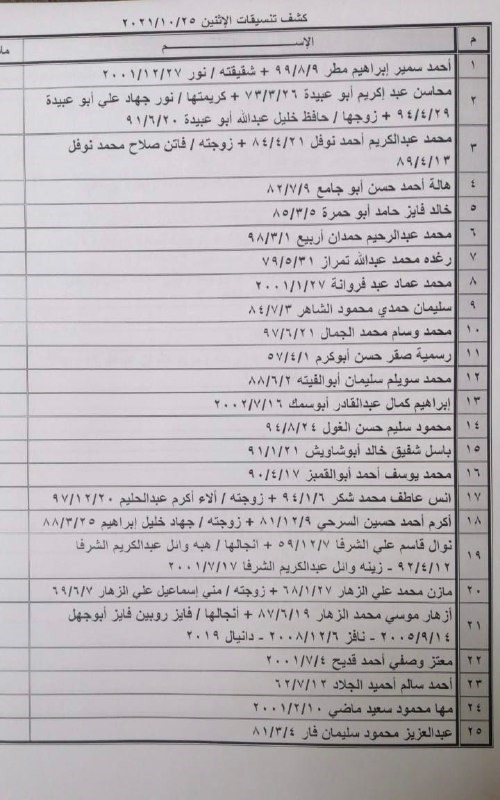 كشف تنسيقات الإثنين ٢٠٢١/١٠/٢٥
م الإســـــم
١ أحمد سمير إبراهيم مطر ٩٩/٨/٩ + شقيقته / نور ٢٠٠١/١٢/٢٧
٢ محاسن عبد إكريم أبو عبيدة ٧٣/٣/٢٦ + كريمتها / نور جهاد علي أبو عبيدة
٩٤/٤/٢٩ + زوجها / حافظ خليل عبدالله أبو عبيدة ٩١/٦/٢٠
٣ محمد عبدالكريم أحمد نوفل ٨٤/٤/٢١ + زوجته / فاتن صلاح محمد نوفل
٨٩/٤/١٣
٤ هالة أحمد حسن أبو جامع ٨٢/٧/٩
٥ خالد فايز حامد أبو حمرة ٨٥/٣/٥
٦ محمد عبدالرحيم حمدان أربيع ٩٨/٣/١
٧ رغده محمد عبدالله تمراز ٧٩/٥/٣١
٨ محمد عماد عبد فروانة ٢٠٠١/١/٢٧
٩ سليمان حمدي محمود الشاهر ٨٤/٧/٣
١٠ محمد وسام محمد الجمال ٩٧/٦/٢١
١١ رسمية صقر حسن أبوكرم ٥٧/٤/١
١٢ محمد سويلم سليمان أبوالفيته ٨٨/٦/٢
١٣ إبراهيم كمال عبدالقادر أبوسمك ٢٠٠٢/٧/١٦
١٤ محمود سليم حسن الغول ٩٤/٨/٢٤
١٥ باسل شفيق خالد أبوشاويش ٩١/١/٢١
١٦ محمد يوسف أحمد أبوالقمبز ٩٠/٤/١٧
١٧ انس عاطف محمد شكر ٩٤/١/٦ + زوجته / ألاء أكرم عبدالحليم ٩٧/١٢/٢٠
١٨ أكرم أحمد حسين السرحي ٨١/١٢/٩ + زوجته / جهاد خليل إبراهيم ٨٨/٣/٢٥
١٩ نوال قاسم علي الشرفا ٥٩/١٢/٧ + انجالها / هبه وائل عبدالكريم الشرفا
٩٢/٤/١٢ - زينه وائل عبدالكريم الشرفا ٢٠٠١/٧/١٧
٢٠ مازن محمد علي الزهار ٦٨/١/٢٧ + زوجته / مني إسماعيل علي الزهار ٦٩/٦/٧
٢١ أزهار موسي محمد الزهار ٨٧/٦/١٩ + أنجالها / فايز روبين فايز أبوجهل
٢٠٠٥/٩/١٤ - نافز ٢٠٠٨/١٢/٦ - دانيال ٢٠١٩
٢٢ معتز وصفي أحمد قديح ٢٠٠١/٧/٤
٢٣ أحمد سالم أحميد الجلاد ٦٢/٧/١٢
٢٤ مها محمود سعيد ماضي ٢٠٠١/٢/١٠
٢٥ عبدالعزيز محمود سليمان فار ٨١/٣/٤